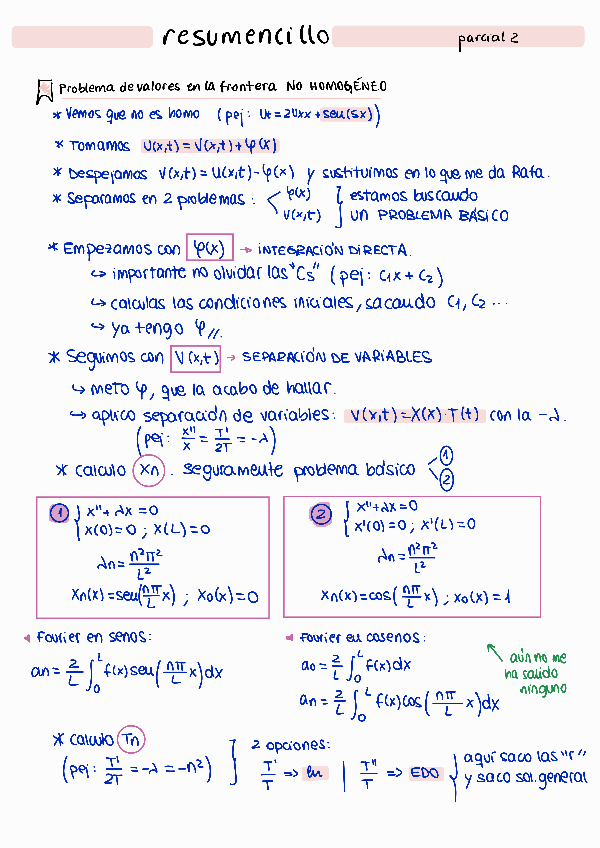 resumencillo
parcial 2
Problema de valores en la frontera NO HOMOGÉNEO
* Vemos que no es homo (pej: Ut = 2Uxx + sen(5x))
* Tomamos U(x,t) = V(x,t) + φ(x)
* Despejamos V(x,t) = U(x,t) - φ(x) y sustituimos en lo que me da Rafa.
* Separamos en 2 problemas: < φ(x) V(x,t) ] estamos buscando UN PROBLEMA BÁSICO
* Empezamos con φ(x) → INTEGRACIÓN DIRECTA.
↪ importante no olvidar las "Cs" (pej: C1x + C2)
↪ calculas las condiciones iniciales, sacando C1, C2 ...
↪ ya tengo φ //.
* Seguimos con V(x,t) → SEPARACIÓN DE VARIABLES
↪ meto φ, que la acabo de hallar.
↪ aplico separación de variables: V(x,t) = X(x)·T(t) con la -λ.
(pej: X''/X = T'/2T = -λ)
* Calculo Xn. Seguramente problema básico < 1 2
1 { X'' + λX = 0
X(0) = 0 ; X(L) = 0
λn = n²π²/L²
Xn(x) = sen(nπ/L x) ; X0(x) = 0
2 { X'' + λX = 0
X'(0) = 0 ; X'(L) = 0
λn = n²π²/L²
Xn(x) = cos(nπ/L x) ; X0(x) = 1
◂ Fourier en senos:
an = 2/L ∫₀ᴸ f(x) sen(nπ/L x) dx
◂ Fourier en cosenos:
a0 = 2/L ∫₀ᴸ f(x) dx
an = 2/L ∫₀ᴸ f(x) cos(nπ/L x) dx
aún no me
ha salido
ninguno
* Calculo Tn
(pej: T'/2T = -λ = -n²)
2 opciones:
T'/T => ln | T''/T => EDO
aquí saco las "r"
y saco sol. general